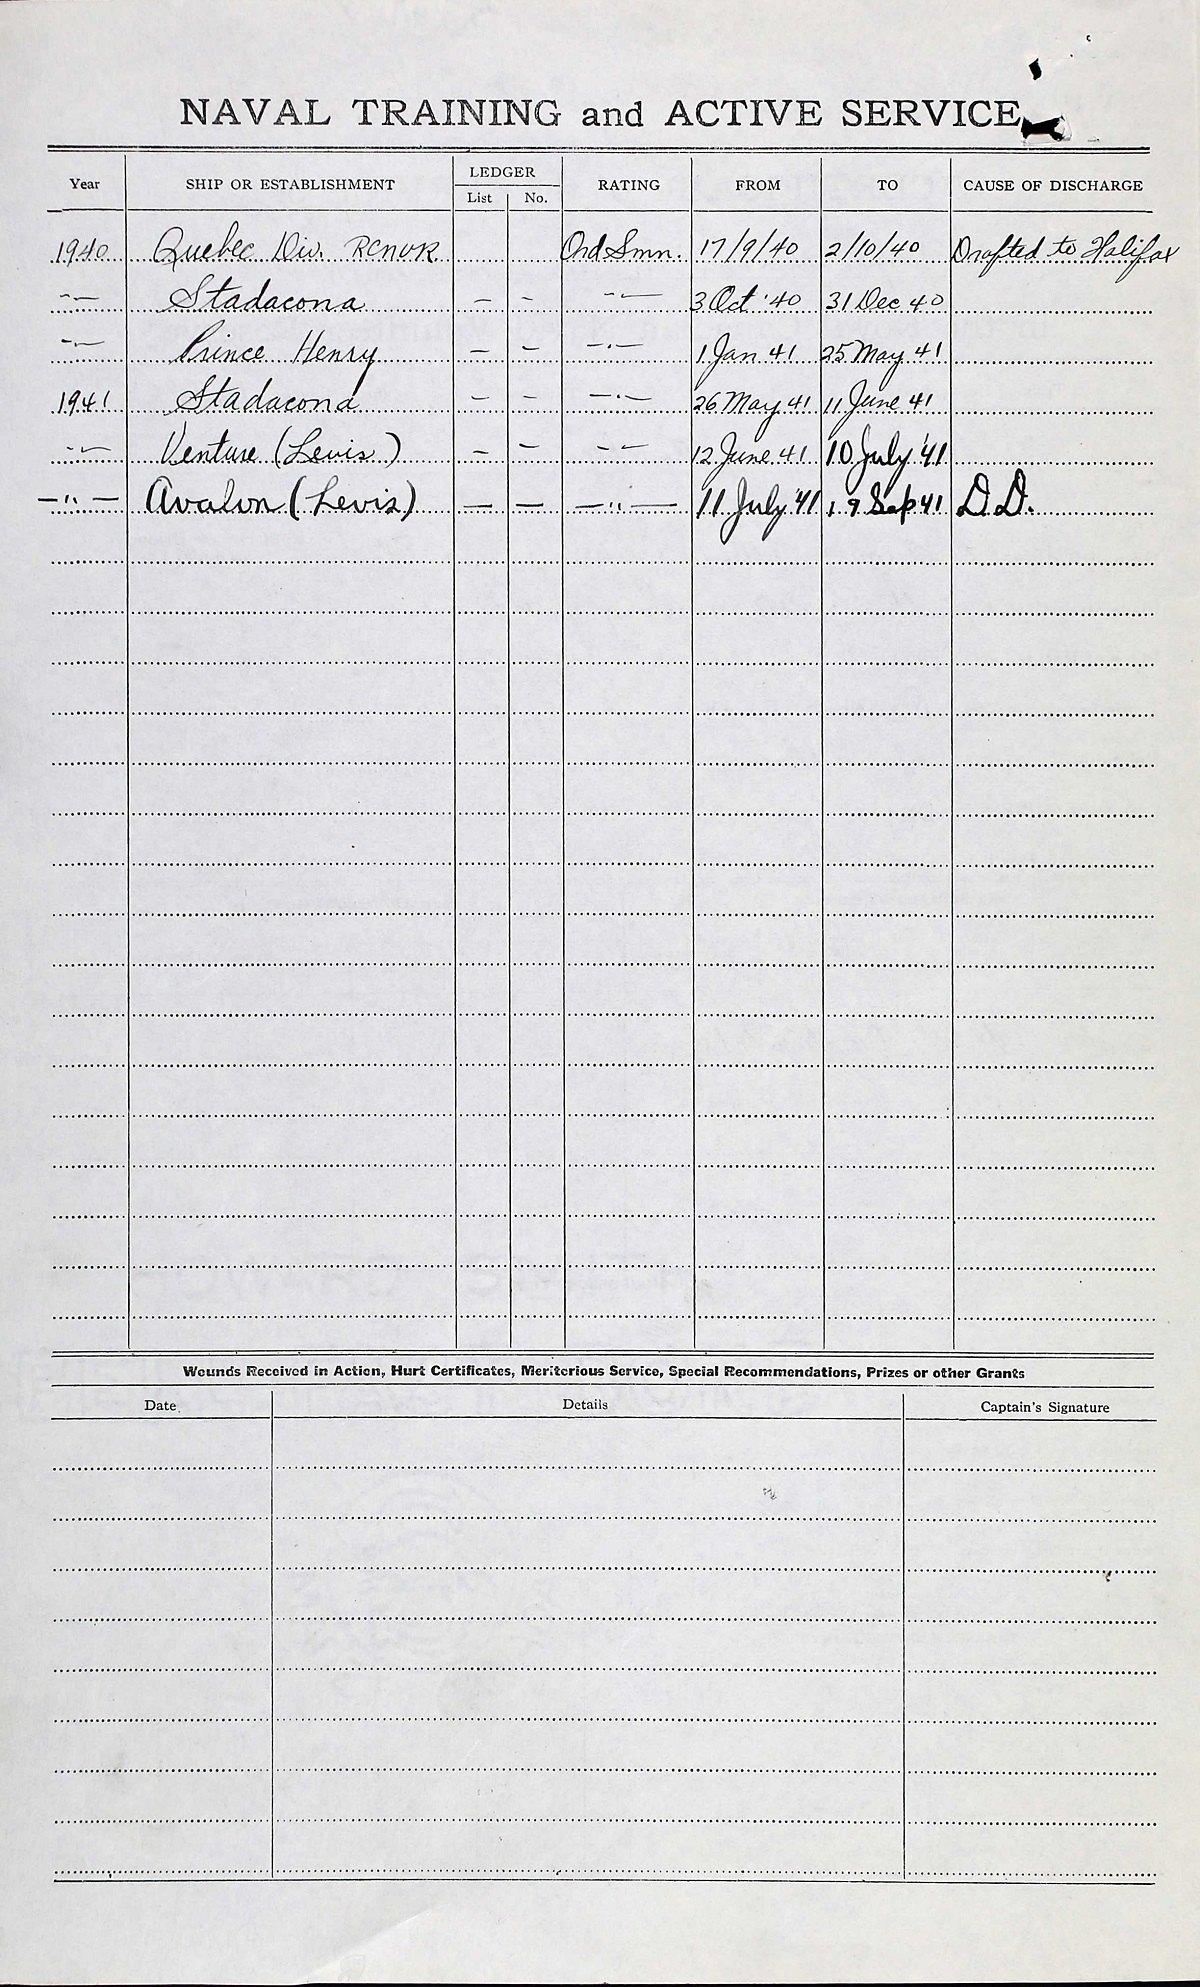 NAVAL TRAINING and ACTIVE SERVICE
Year SHIP OR ESTABLISHMENT LEDGER List No. RATING FROM TO CAUSE OF DISCHARGE
1940 Quebec Div. RCNVR Ord Smn. 17/9/40 2/10/40 Drafted to Halifax
-"- Stadacona - - -"- 3 Oct '40 31 Dec 40
-"- Prince Henry - - -"- 1 Jan 41 25 May 41
1941 Stadacona - - -"- 26 May 41 11 June 41
-"- Venture (Levis) - - -"- 12 June 41 10 July '41
-"- Avalon (Levis) - - -"- 11 July '41 19 Sep 41 D.D.
Wounds Received in Action, Hurt Certificates, Meritorious Service, Special Recommendations, Prizes or other Grants
Date Details Captain's Signature